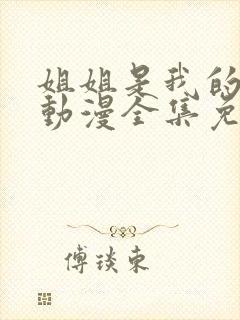 姐姐是我的
動漫全集免
傅琰東